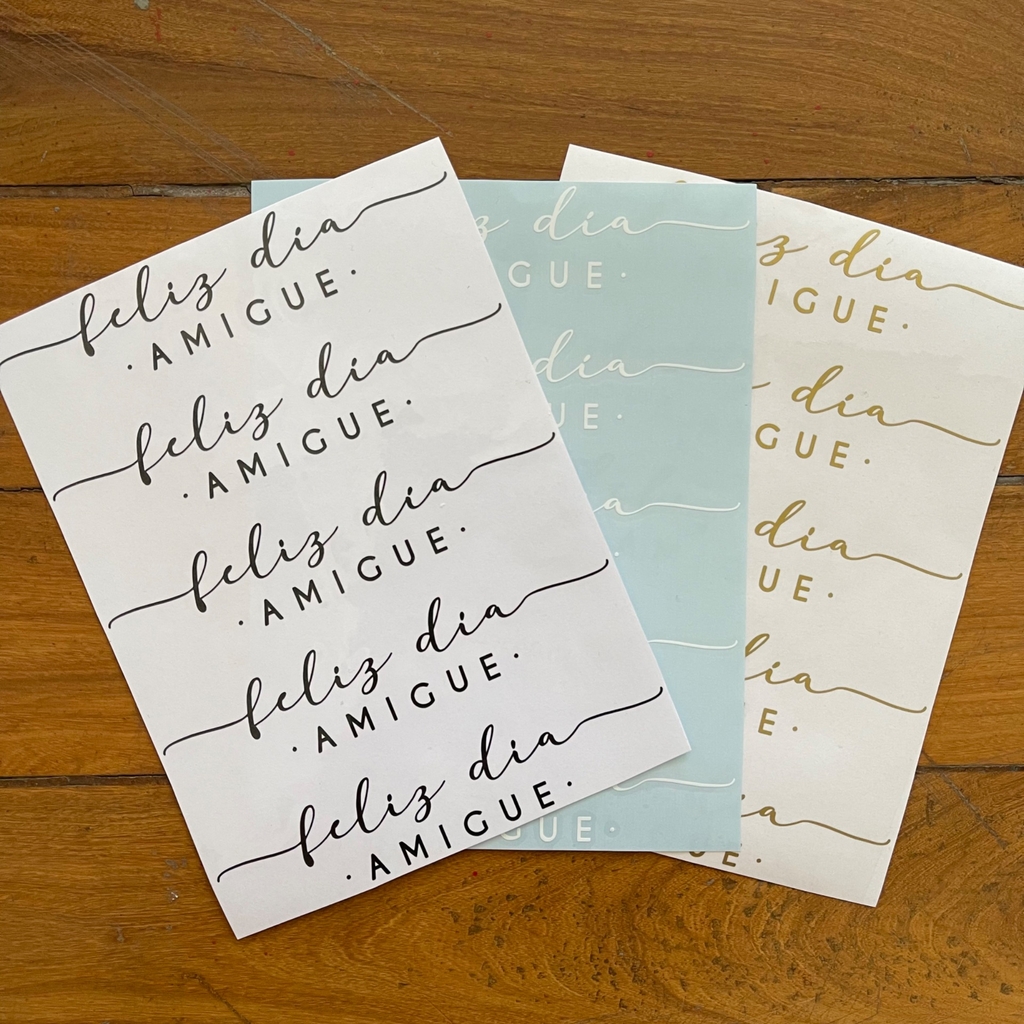 feliz día
· AMIGUE ·
feliz día
· AMIGUE ·
feliz día
· AMIGUE ·
feliz día
· AMIGUE ·
feliz día
· AMIGUE ·
z día
GUE ·
día
UE ·
a
GUE ·
z día
IGUE ·
día
GUE ·
día
UE ·
día
E ·
a
UE ·